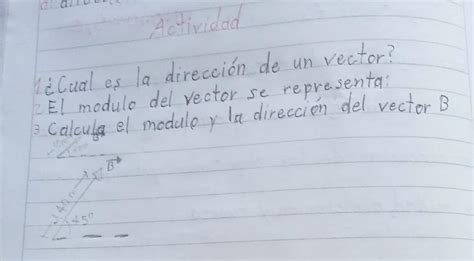 Actividad
1 ¿Cual es la dirección de un vector?
2 El modulo del vector se representa:
3 Calcula el modulo y la dirección del vector B
B
45°